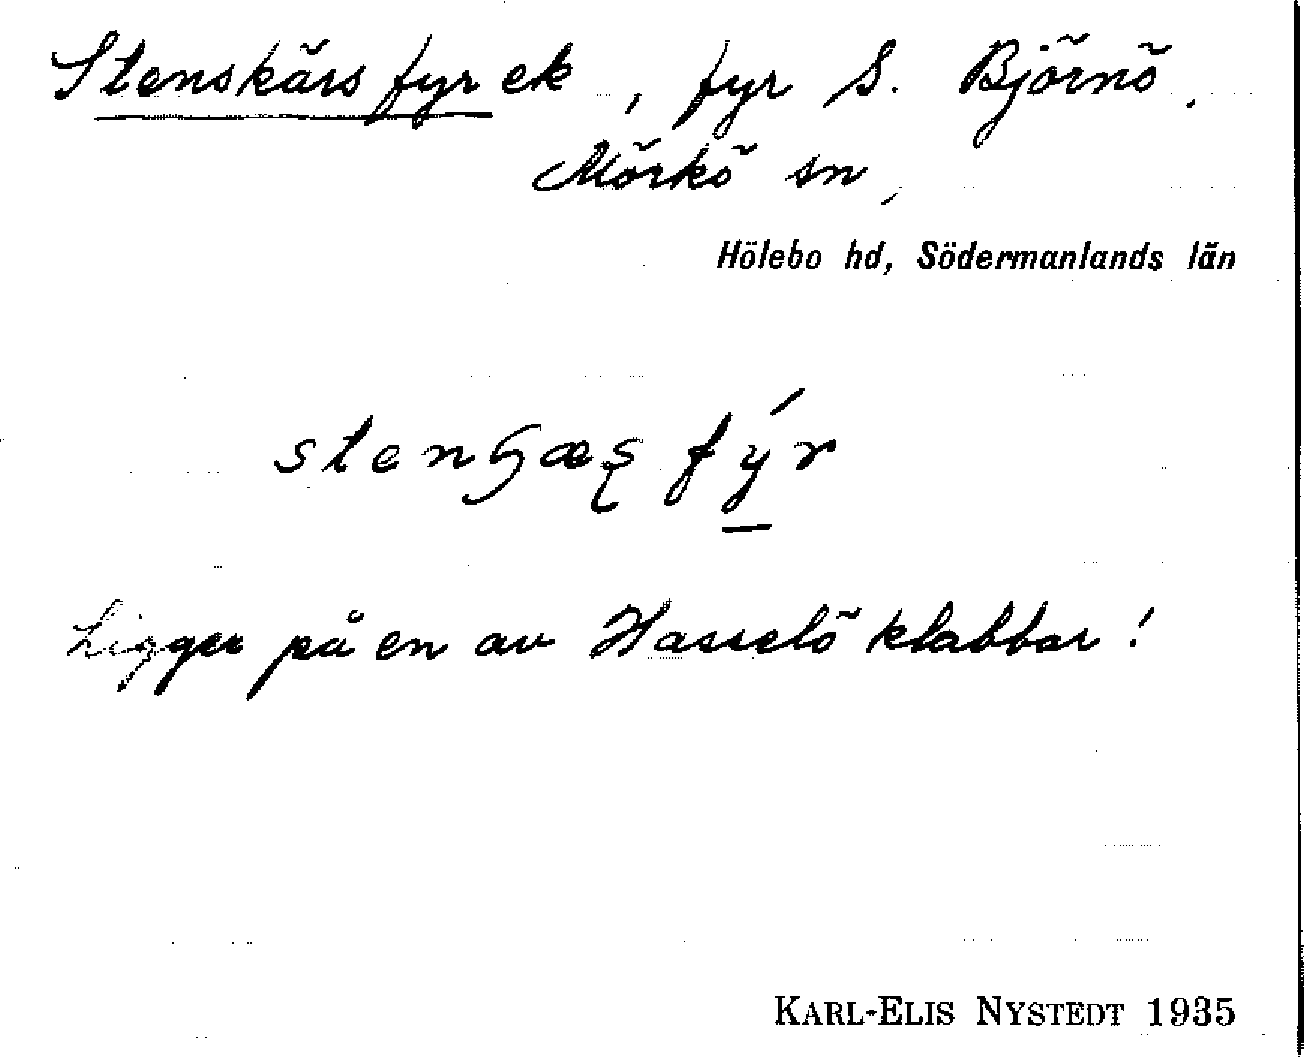 Stenskärs fyr ek, fyr S. Björnö,
Mörkö sn,
Hölebo hd, Södermanlands län
fýr
Ligger på en av Hasselö klabbar!
KARL-ELIS NYSTEDT 1935